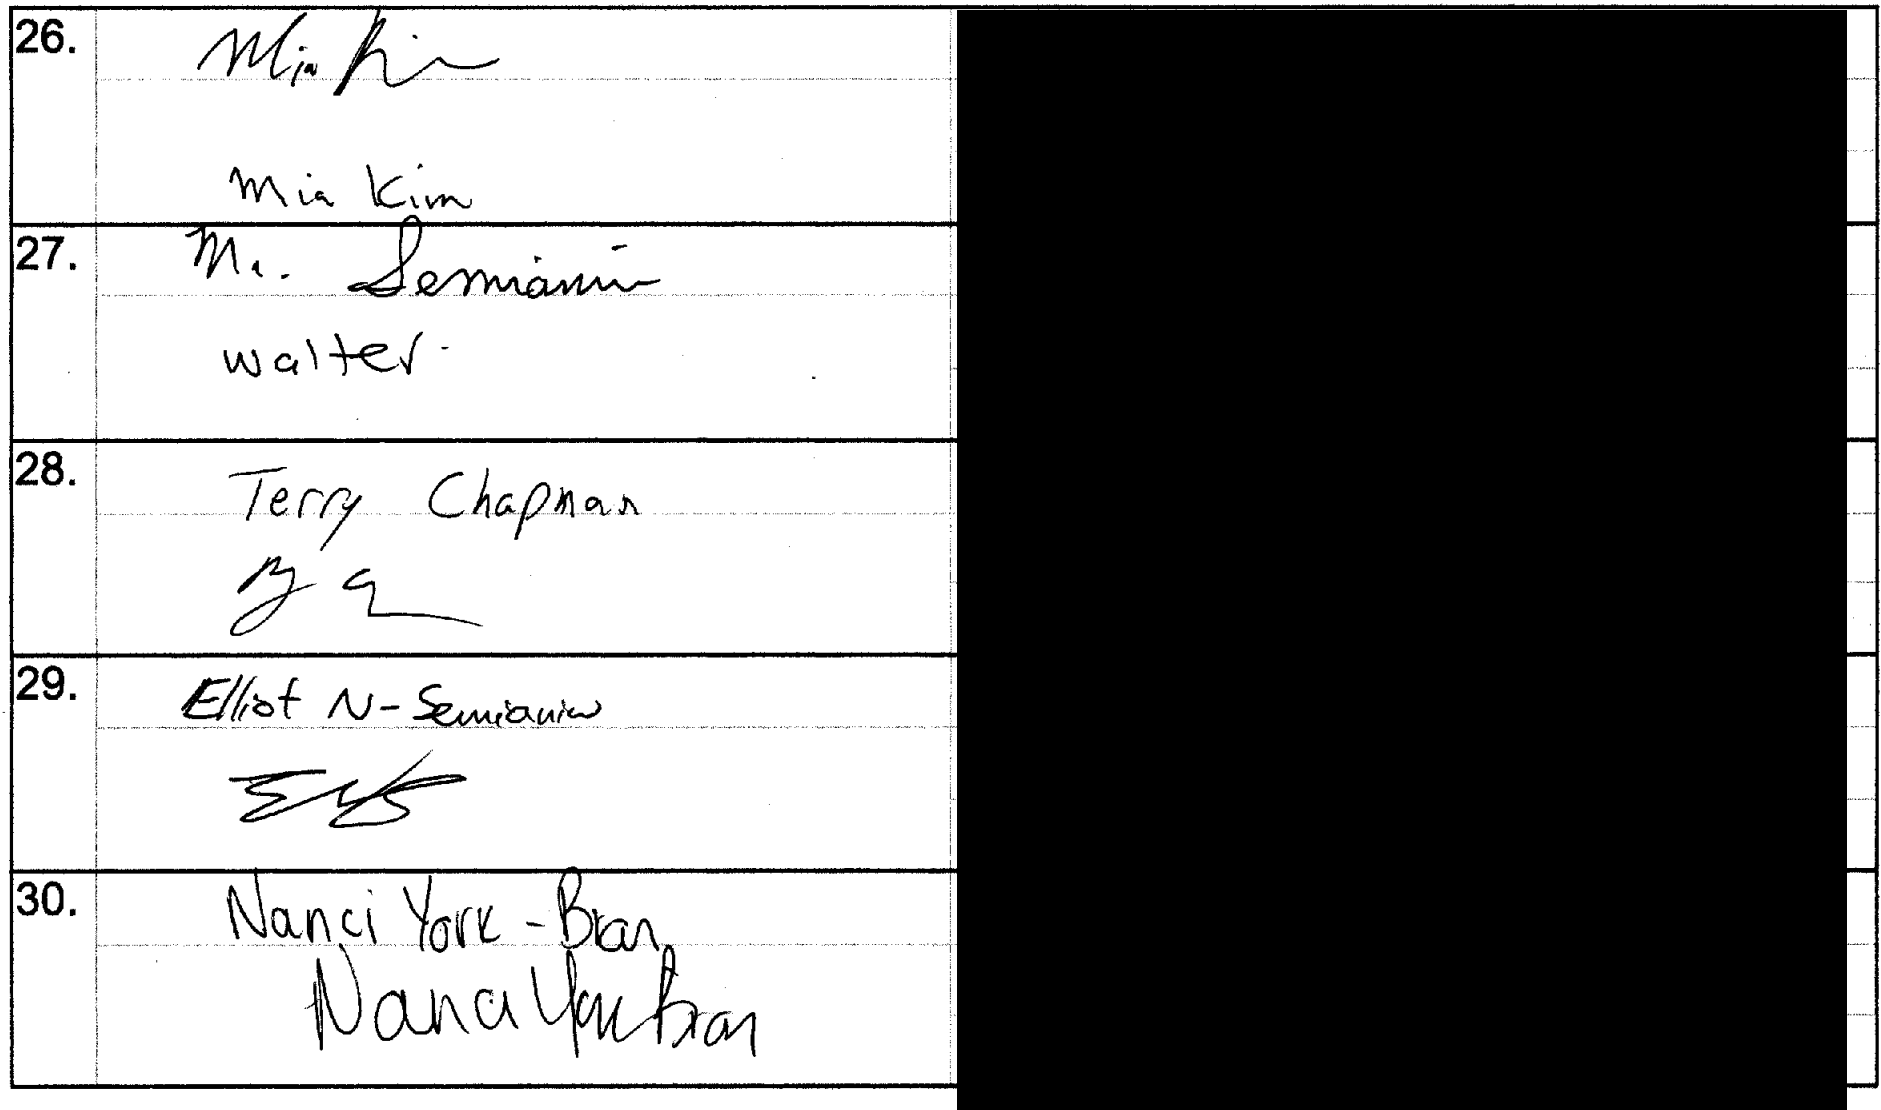 26.
Mia Kim
Mia Kim
27.
Mr. Semianiw
Walter
28.
Terry Chapman
29.
Elliot N-Semianiw
30.
Nanci York-Bran
Nanci York Bran